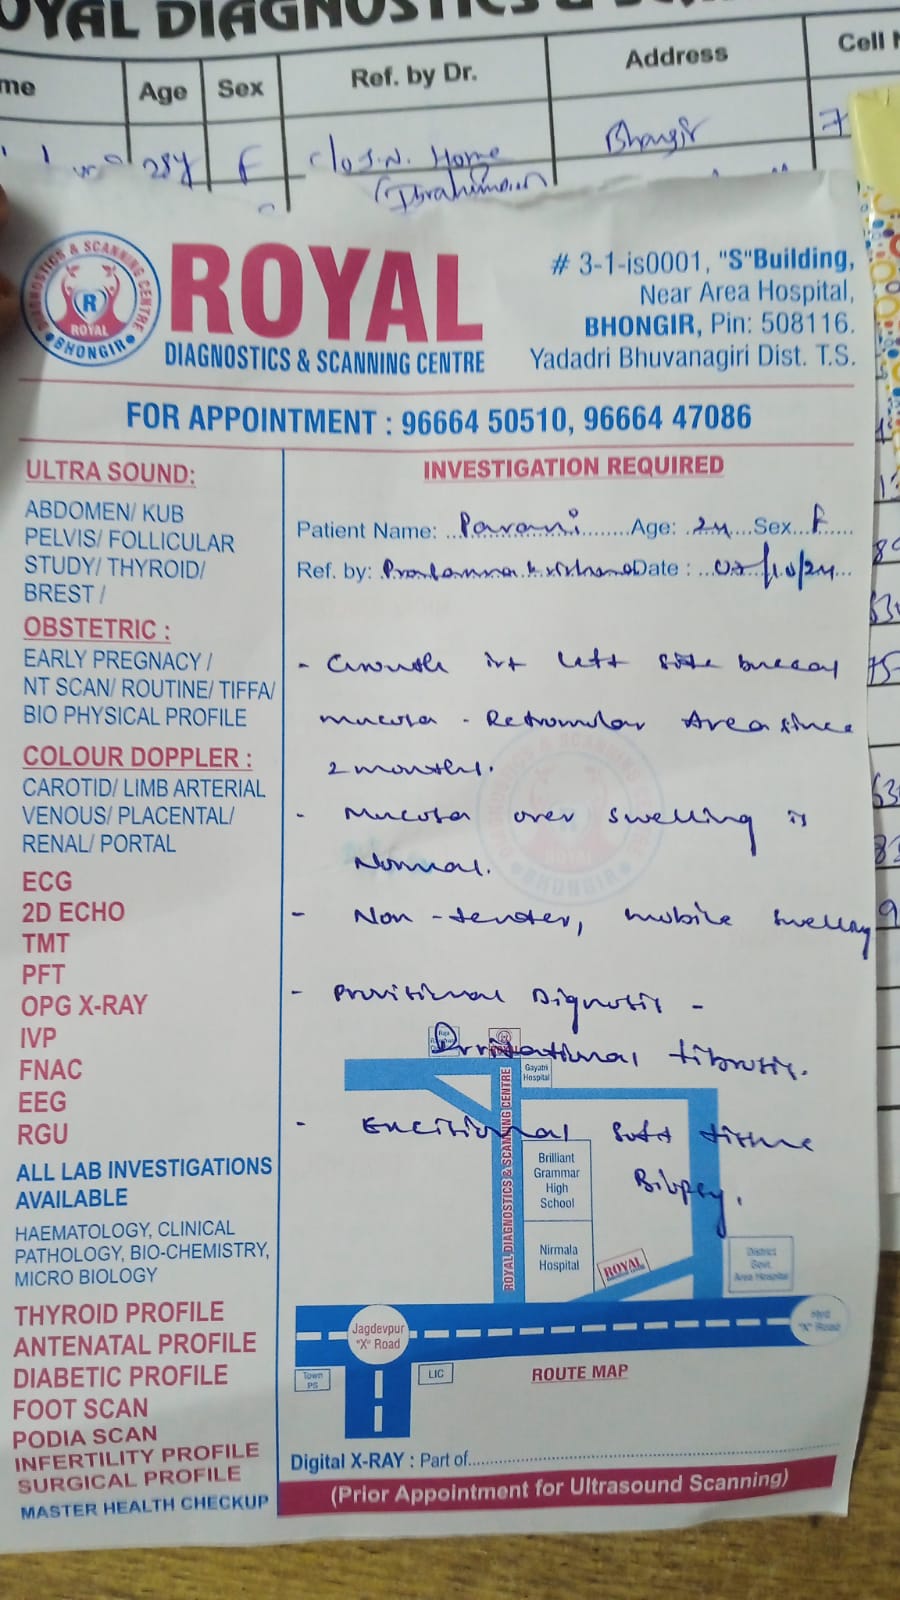 ROYAL DIAGNOSTICS &
me Age Sex Ref. by Dr. Address Cell N
28y F Clo S.N. Home Bhongir 7
(Ibrahimpur)
DIAGNOSTICS & SCANNING CENTRE
R
ROYAL
BHONGIR
ROYAL
DIAGNOSTICS & SCANNING CENTRE
# 3-1-is0001, "S"Building,
Near Area Hospital,
BHONGIR, Pin: 508116.
Yadadri Bhuvanagiri Dist. T.S.
FOR APPOINTMENT : 96664 50510, 96664 47086
ULTRA SOUND:
ABDOMEN/ KUB
PELVIS/ FOLLICULAR
STUDY/ THYROID/
BREST /
OBSTETRIC :
EARLY PREGNACY /
NT SCAN/ ROUTINE/ TIFFA/
BIO PHYSICAL PROFILE
COLOUR DOPPLER :
CAROTID/ LIMB ARTERIAL
VENOUS/ PLACENTAL/
RENAL/ PORTAL
ECG
2D ECHO
TMT
PFT
OPG X-RAY
IVP
FNAC
EEG
RGU
ALL LAB INVESTIGATIONS
AVAILABLE
HAEMATOLOGY, CLINICAL
PATHOLOGY, BIO-CHEMISTRY,
MICRO BIOLOGY
THYROID PROFILE
ANTENATAL PROFILE
DIABETIC PROFILE
FOOT SCAN
PODIA SCAN
INFERTILITY PROFILE
SURGICAL PROFILE
MASTER HEALTH CHECKUP
INVESTIGATION REQUIRED
Patient Name: Pavani Age: 24 Sex F
Ref. by: Date : 07/10/24
- Growth irt left side buccal
mucosa - Retromolar Area since
2 months.
- Mucosa over swelling is
Normal.
- Non-tender, mobile swelling
- Provisional Dignosis -
Irritational fibrosis.
- Excisional soft tissue
Biopsy.
Gayatri
Hospital
ROYAL DIAGNOSTICS & SCANNING CENTRE
Brilliant
Grammar
High
School
Nirmala
Hospital
ROYAL
District
Govt.
Area Hospital
Jagdevpur
"X" Road
Hyd
"X" Road
Town
PS
LIC
ROUTE MAP
Digital X-RAY : Part of
(Prior Appointment for Ultrasound Scanning)